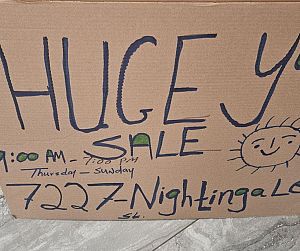 HUGE Y
SALE
9:00 AM - 7:00 PM
Thursday - Sunday
7227-Nightingale
St.